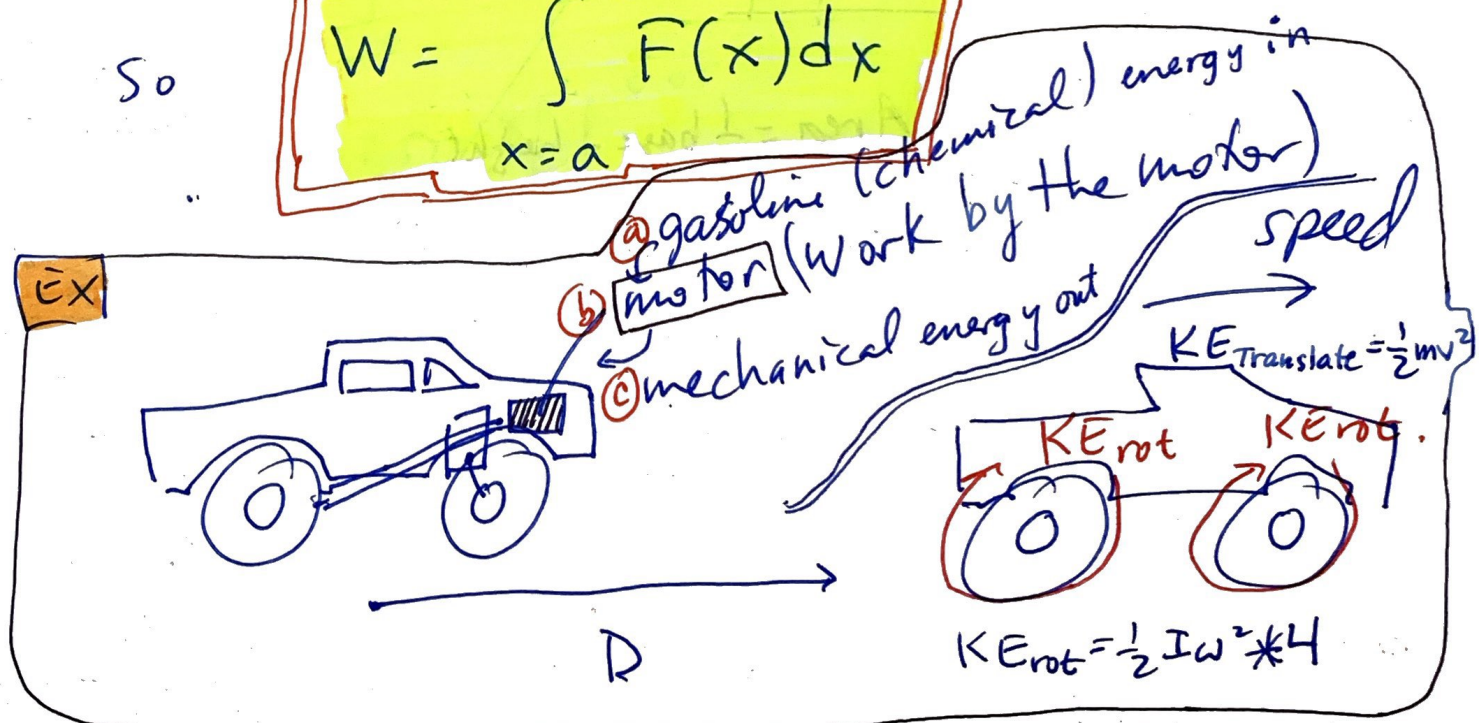 So
W = ∫ F(x)dx
x=a
EX
ⓐ gasoline (chemical) energy in
ⓑ motor (Work by the motor)
ⓒ mechanical energy out
speed
KE Translate = 1/2 mv²
KE rot
KE rot.
D
KE rot = 1/2 Iω² * 4